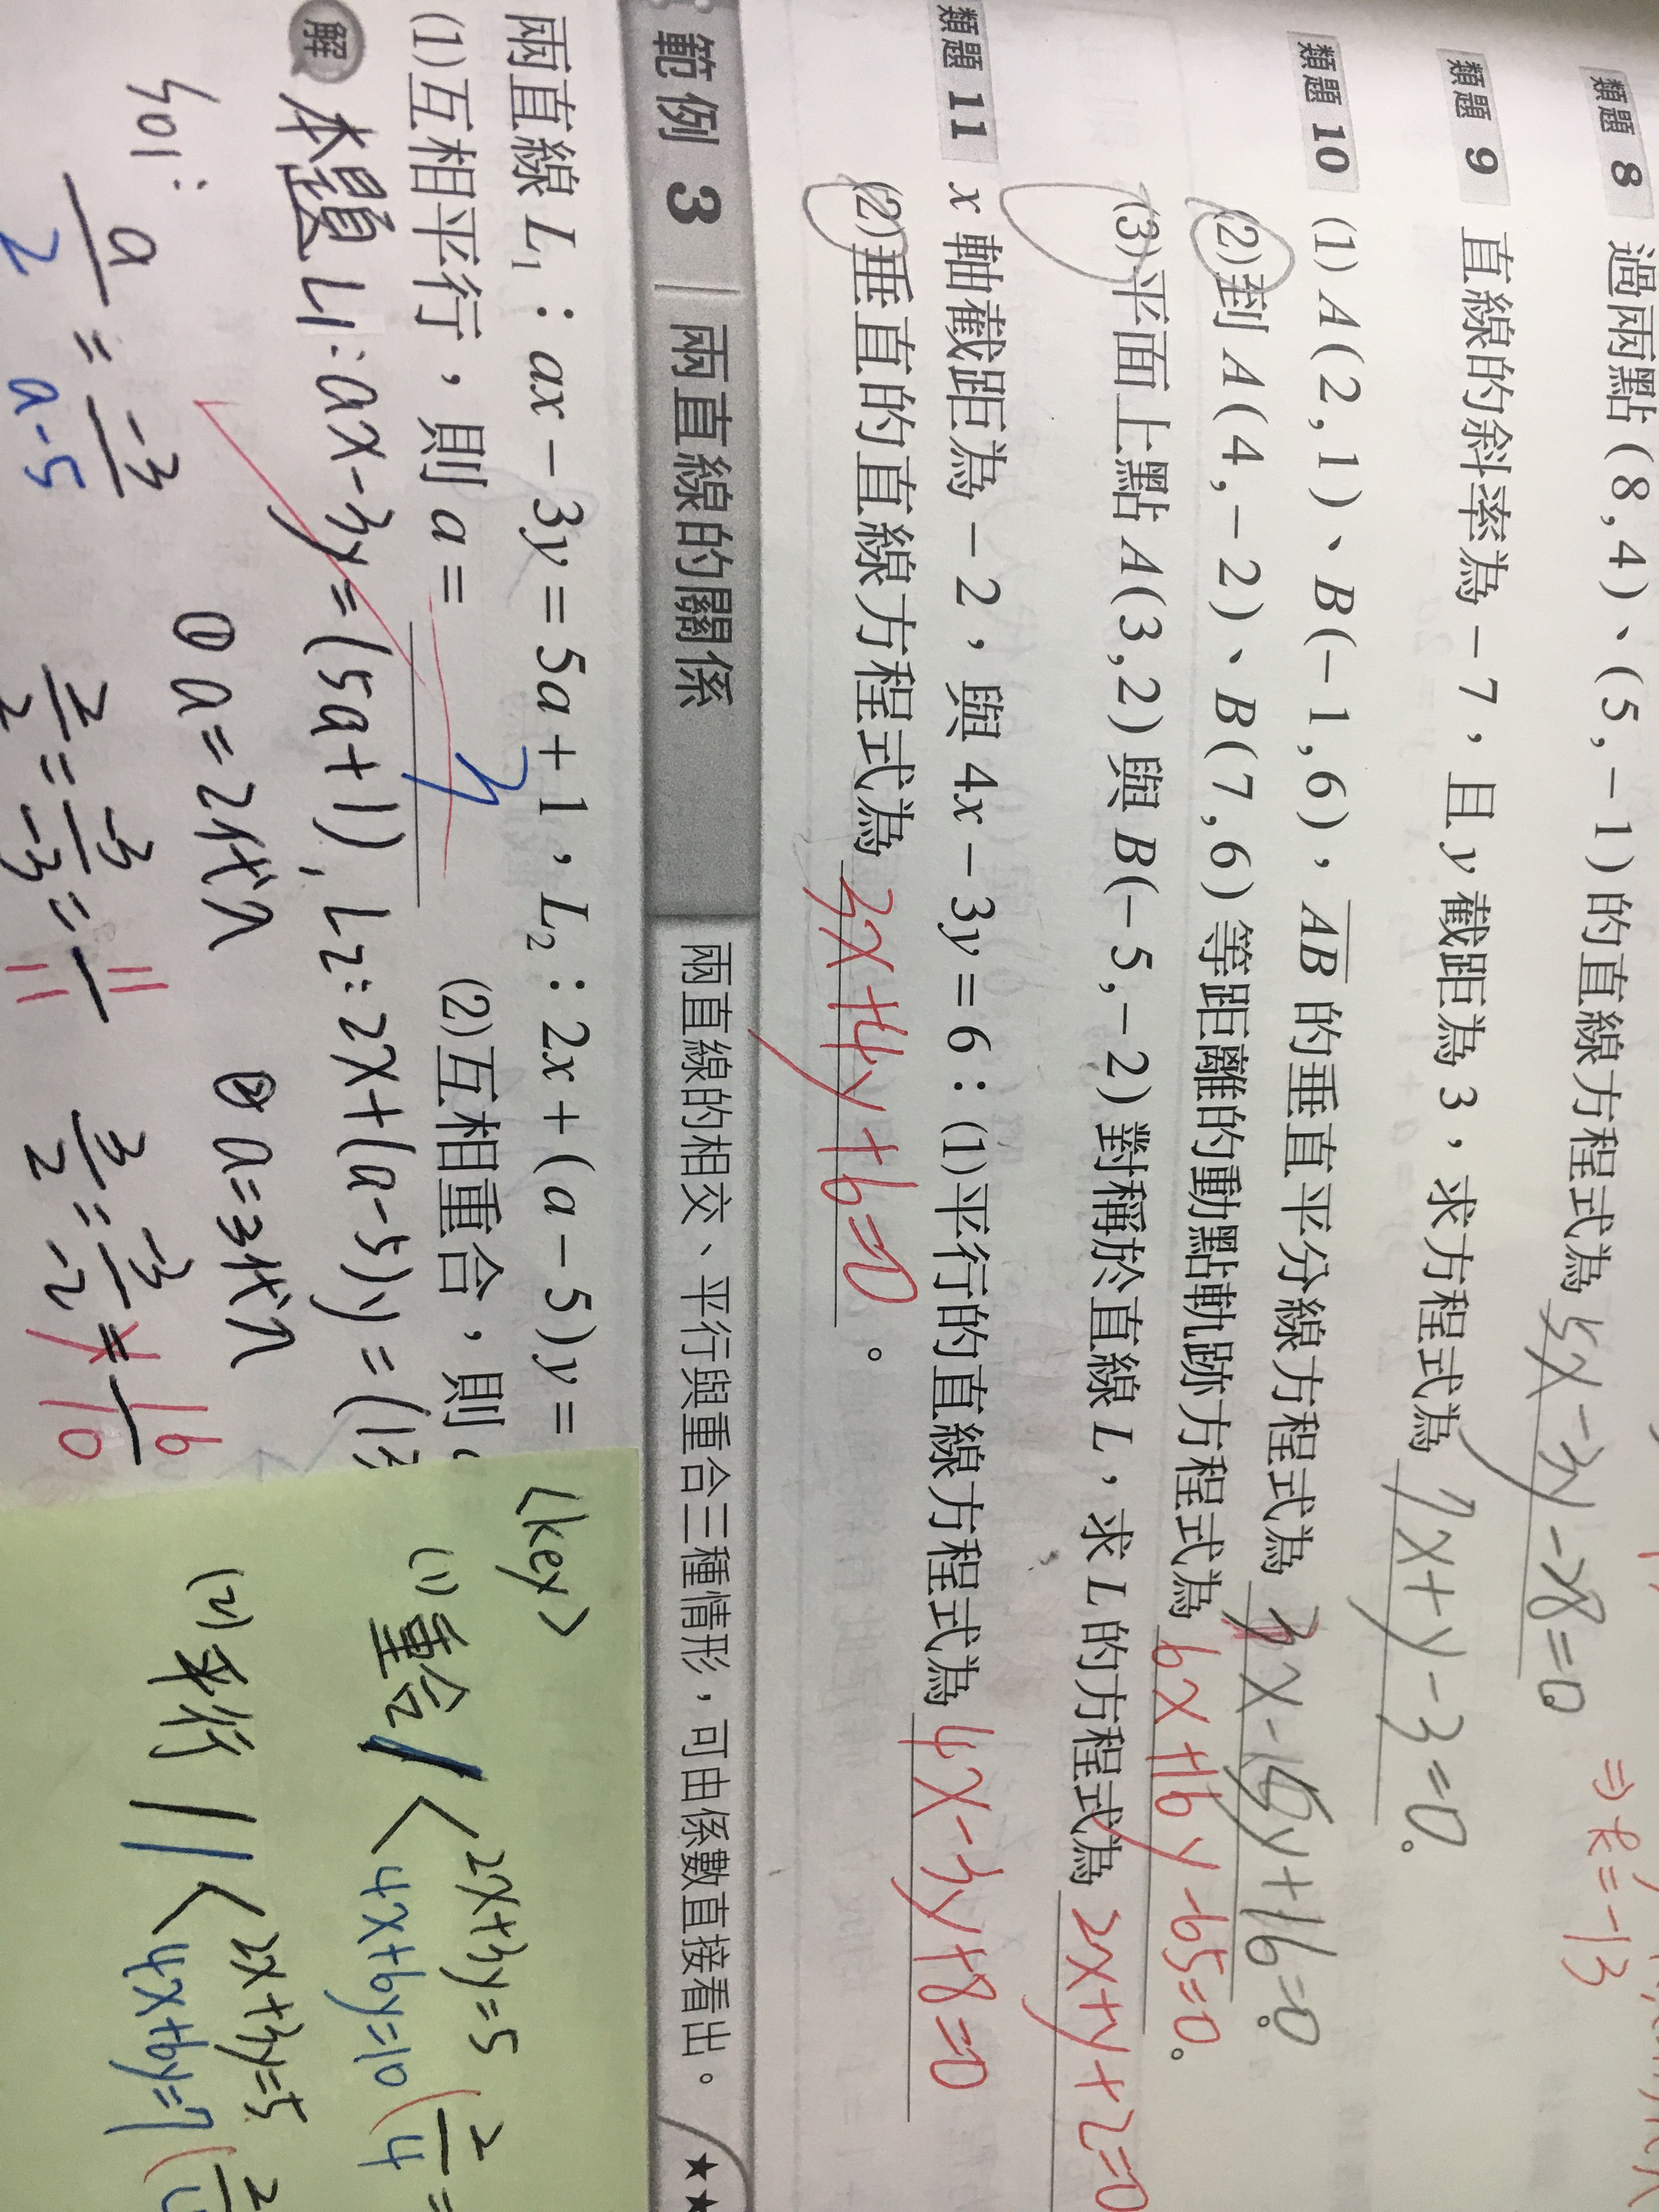 ⇒ k = -13
類題 8 過兩點 (8,4)、(5,-1) 的直線方程式為 5x-3y-28=0。
類題 9 直線的斜率為 -7，且 y 截距為 3，求方程式為 7x+y-3=0。
類題 10 (1) A(2,1)、B(-1,6)，AB 的垂直平分線方程式為 3x-5y+16=0。
(2)到 A(4,-2)、B(7,6) 等距離的動點軌跡方程式為 6x+16y-65=0。
(3)平面上點 A(3,2) 與 B(-5,-2) 對稱於直線 L，求 L 的方程式為 2x+y+2=0
類題 11 x 軸截距為 -2，與 4x-3y=6：(1)平行的直線方程式為 4x-3y+8=0
(2)垂直的直線方程式為 3x+4y+6=0。
範例 3 兩直線的關係 兩直線的相交、平行與重合三種情形，可由係數直接看出。 ★★
兩直線 L₁：ax-3y=5a+1，L₂：2x+(a-5)y=
(1)互相平行，則 a= 3 (2)互相重合，則
解 本題 L1:ax-3y=(5a+1), L2:2x+(a-5)y=(
sol: ① a=2代入 ② a=3代入
a/2 = -3/a-5 2/2 = -3/-3 = 11/11 3/2 = -3/-2 ≠ 16/10
<key>
(1) 重合 / < 2x+3y=5
4x+6y=10 (2/4 =
(2) 平行 // < 2x+3y=5
4x+6y=7